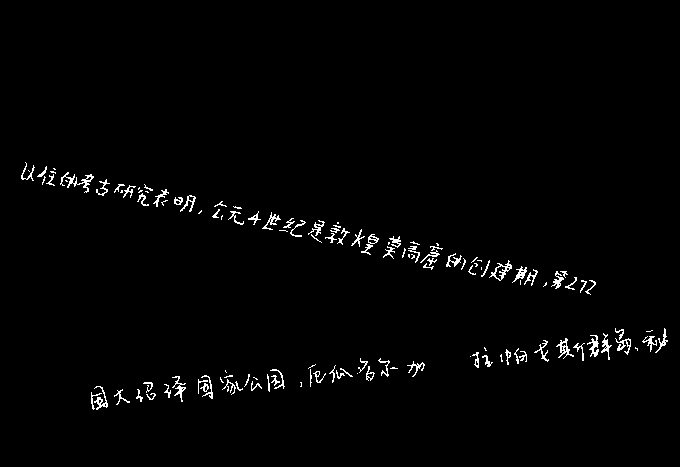 以往的考古研究表明，公元4世纪是敦煌莫高窟的创建期，第272
国大沼泽国家公园，厄瓜多尔加 拉帕戈斯群岛、秘